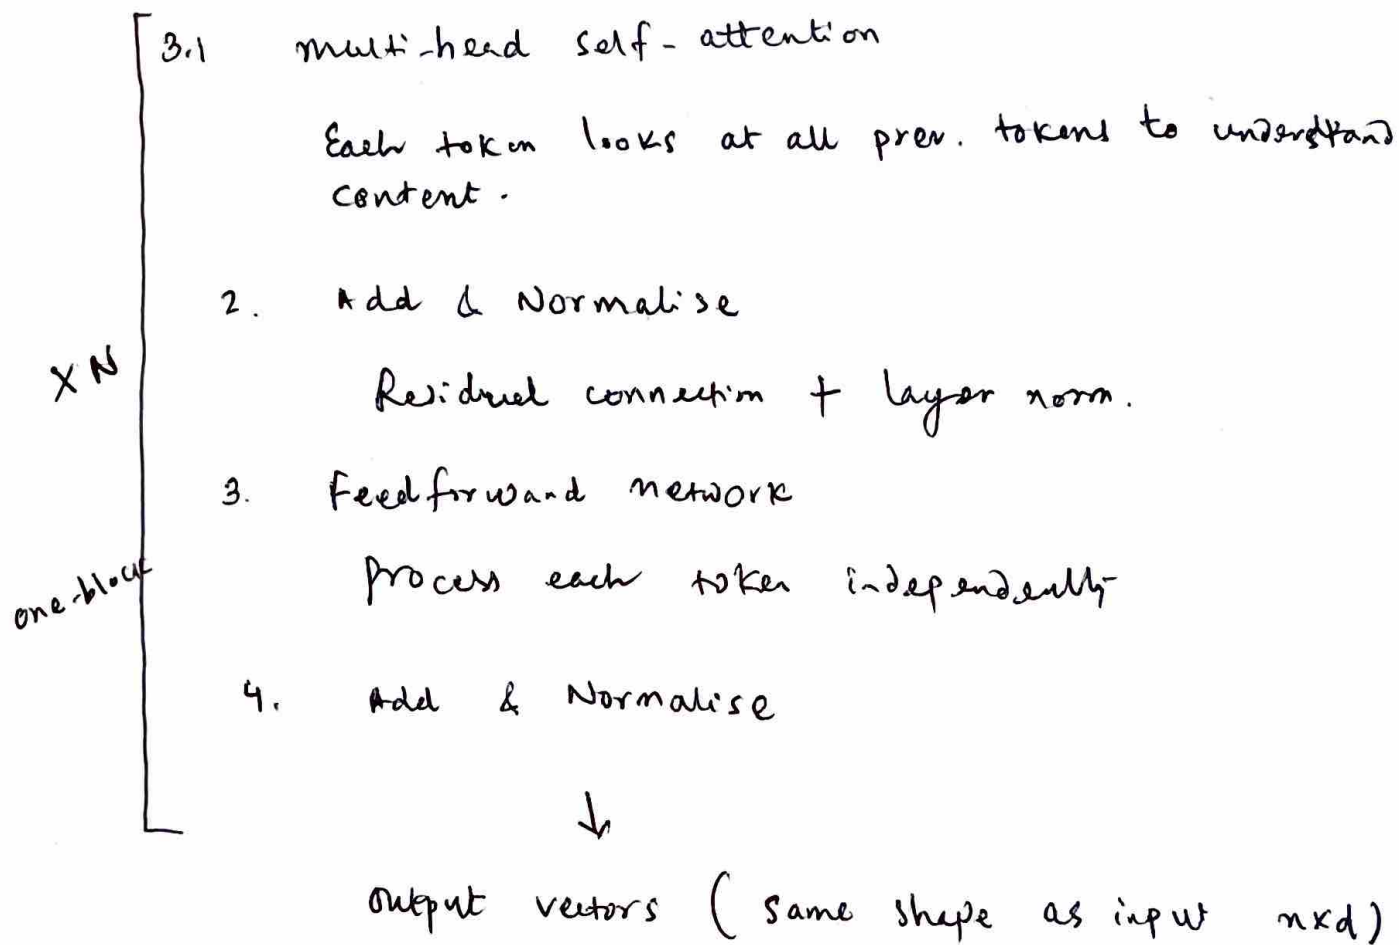 3.1 multi-head self-attention
Each token looks at all prev. tokens to understand
content.
2. Add & Normalise
XN
Residual connection + layer norm.
3. Feedforward network
one-block
Process each token independently
4. Add & Normalise
↓
output vectors (same shape as input nxd)